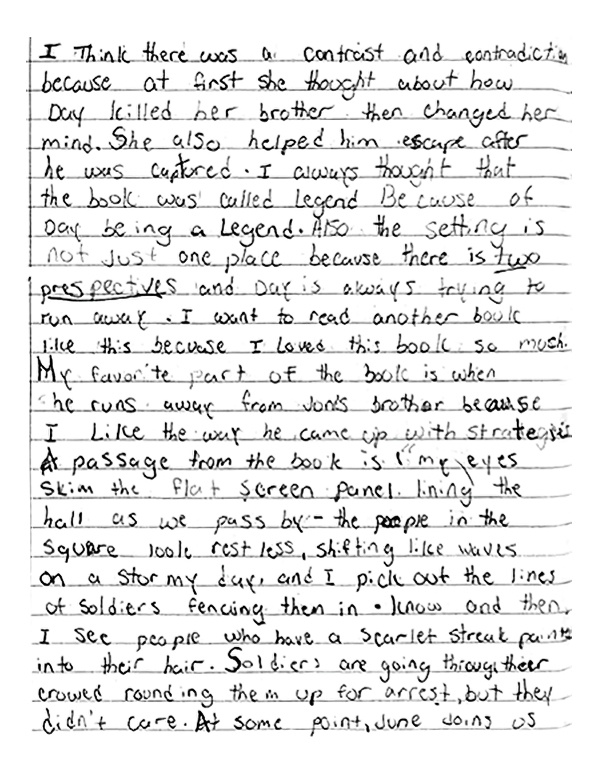 I Think there was a contrast and contradiction
because at first she thought about how
Day killed her brother then changed her
mind. She also helped him escape after
he was captured. I always thought that
the book was called Legend Because of
Day being a Legend. Also the setting is
not Just one place because there is two
prespectives and Day is always trying to
run away. I want to read another book
like this becuase I Loved this book so much.
My favorite part of the book is when
he runs away from Jon's brother because
I Like the way he came up with strategies
A passage from the book is "my eyes
skim the flat screen panel lining the
hall as we pass by - the people in the
square look restless, shifting like waves
on a stormy day, and I pick out the lines
of soldiers fencing them in. know and then,
I see people who have a scarlet streak paint
into their hair. Soldiers are going through their
crowed rounding them up for arrest, but they
didn't care. At some point, June Joins us